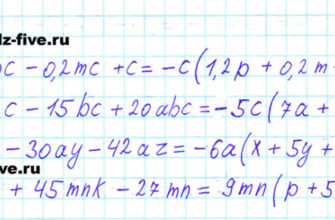 dz-five.ru
pc - 0,2mc + c = -c(1,2p + 0,2m
c - 15bc + 20abc = -5c(7a +
- 30ay - 42az = -6a(x + 5y +
five.ru
+ 45mnk - 27mn = 9mn(p + 5